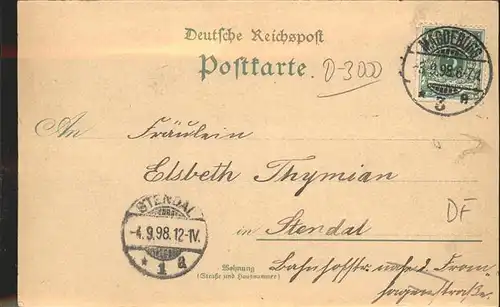 Deutsche Reichspost
Postkarte.
D-3000
MAGDEBURG
-4.9.98.6-7
* 3 a
An Fräulein
Elsbeth Thymian
in Stendal
DF
STENDAL
-4.9.98.12-1V.
* 1 a
Wohnung
(Straße und Hausnummer)
Bahnhofstr.
hagenstraße